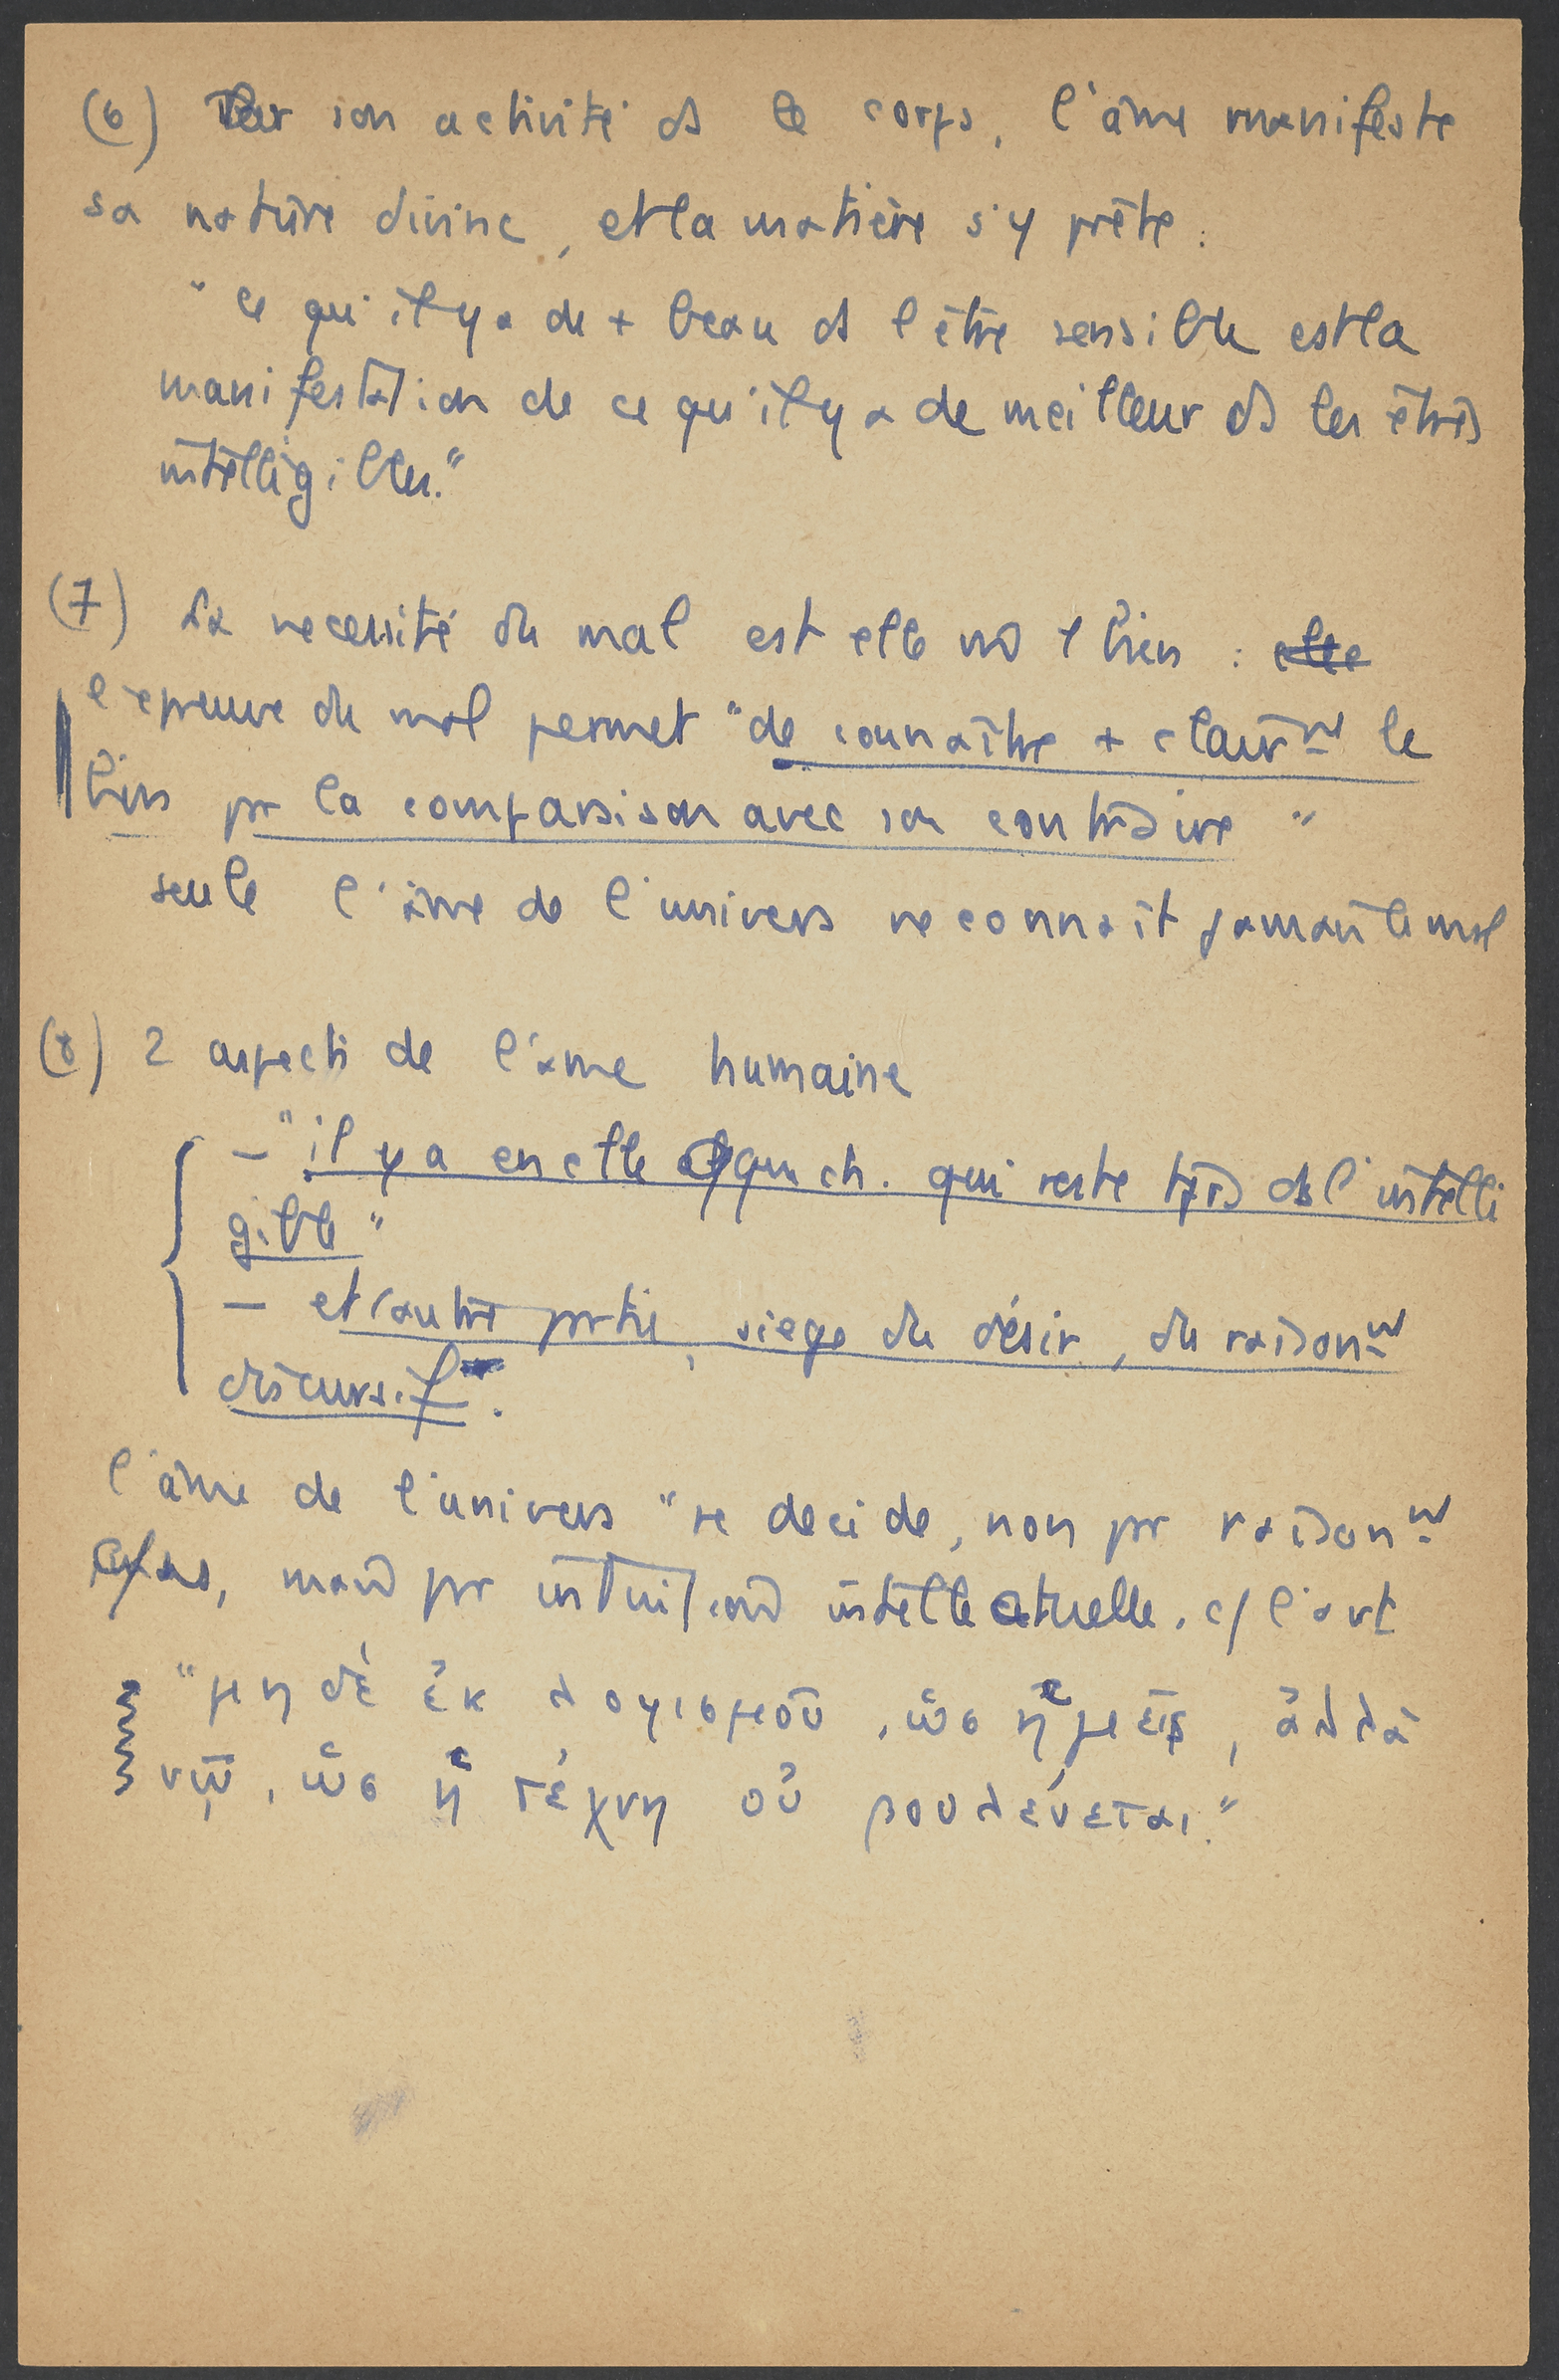 (6) Par son activité ds le corps, l'âme manifeste
sa nature divine, et la matière s'y prête :
"ce qu'il y a de + beau ds l'être sensible est la
manifestation de ce qu'il y a de meilleur ds les êtres
intelligibles."
(7) La necessité du mal est elle un bien : elle
l'épreuve du mal permet "de connaître + clairmt le
bien pr la comparaison avec son contraire"
seule l'âme de l'univers ne connaît jamais le mal
(8) 2 aspects de l'âme humaine
– "il y a en elle qque ch. qui reste tjrs ds l'intelli
gible"
– et l'autre partie, siege du désir, du raisonmt
discursif.
l'âme de l'univers "se decide, non pr raisonmt
mais pr intuition intellectuelle. c/ l'art
"μηδέ ἐκ λογισμοῦ, ὡς ἡμεῖς, ἀλλὰ
νῷ, ὡς ἡ τέχνη οὐ βουλεύεται."